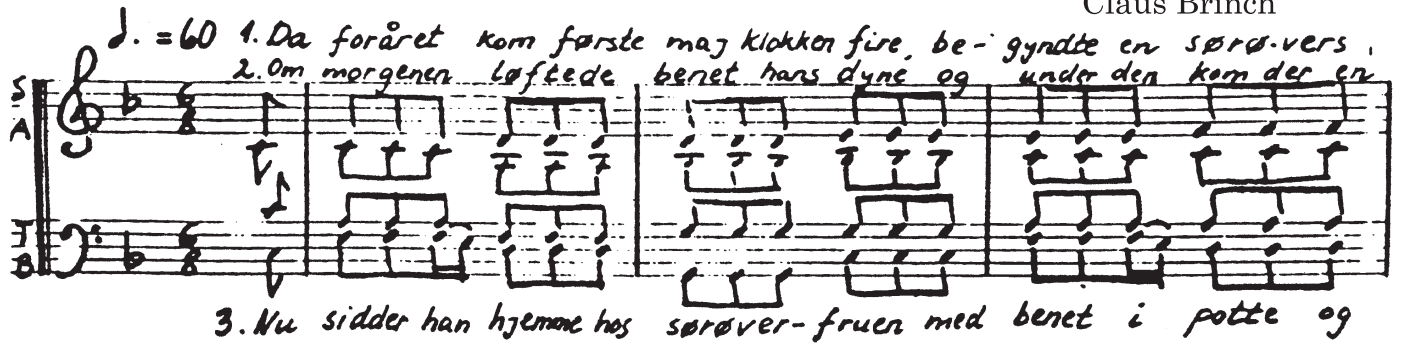 Claus Brinch
♩. = 60 1. Da foråret kom første maj klokken fire, be- gyndte en sørø-vers
2. Om morgenen løftede benet hans dyne og under den kom der en
S
A
6
8
T
B
6
8
3. Nu sidder han hjemme hos sørøver-fruen med benet i potte og